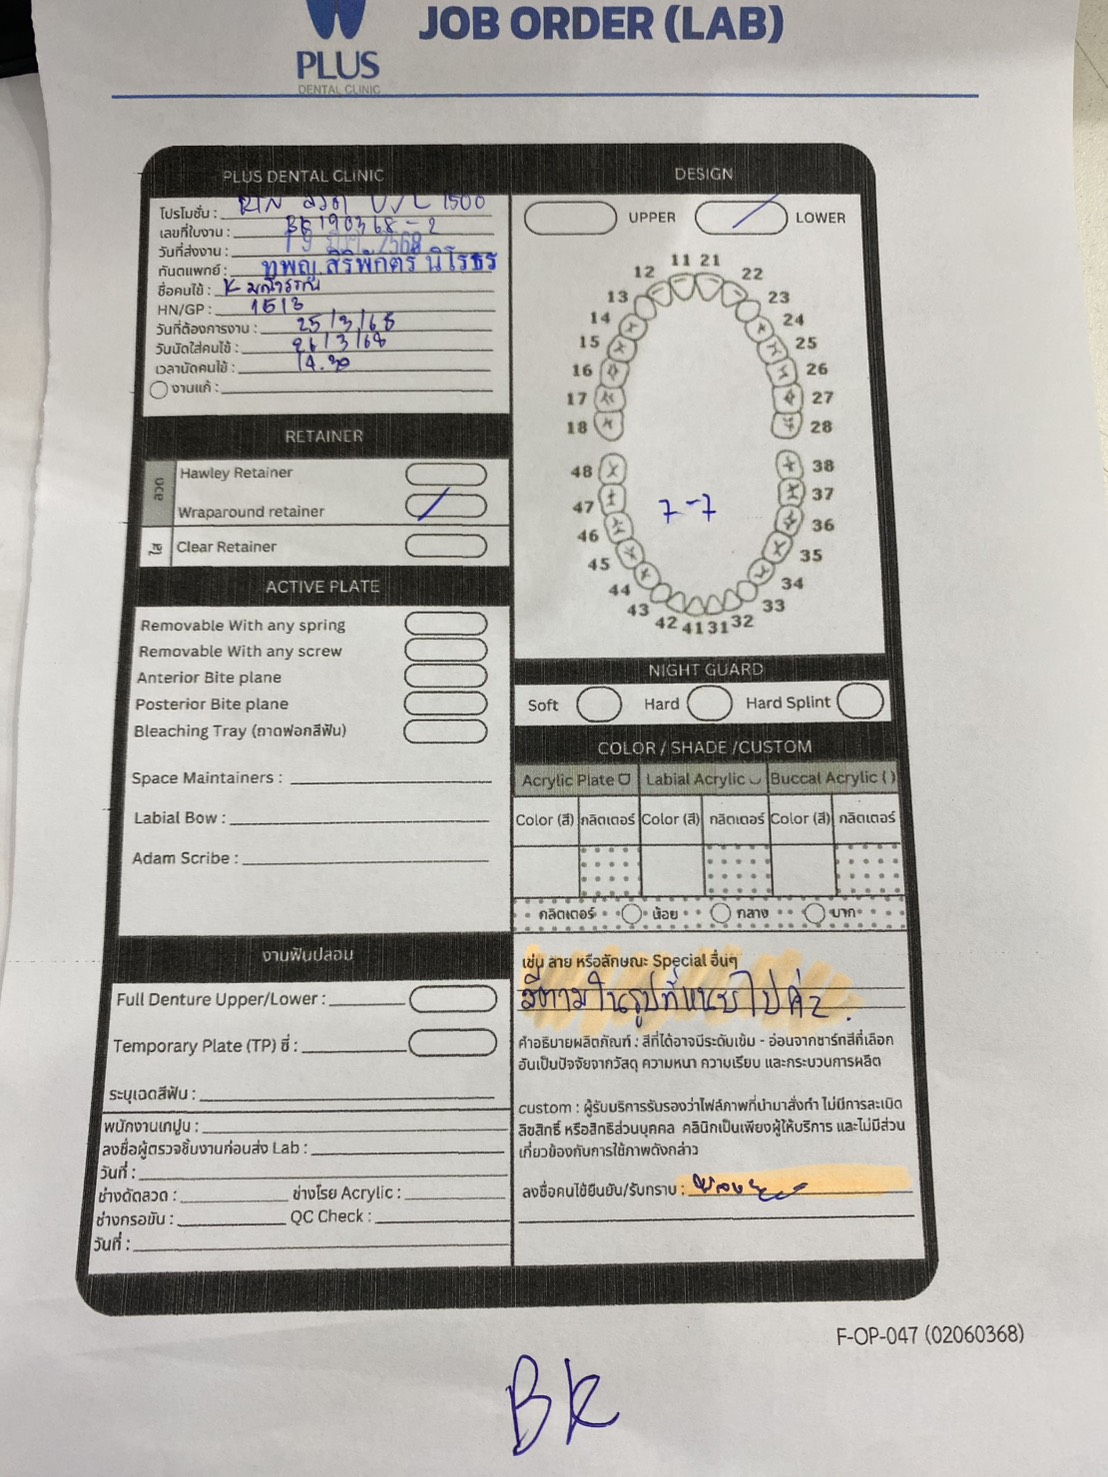 JOB ORDER (LAB)
PLUS
DENTAL CLINIC
PLUS DENTAL CLINIC
โปรโมชั่น : RTN ลวด U/L 1500
เลขที่ใบงาน : BK190368-2
วันที่ส่งงาน : 19 มี.ค. 2568
ทันตแพทย์ : ทพญ.สิริพักตร์ นิโรธร
ชื่อคนไข้ : K
HN/GP : 1513
วันที่ต้องการงาน : 25/3/68
วันนัดใส่คนไข้ : 26/3/68
เวลานัดคนไข้ : 14.30
งานแก้ :
RETAINER
ลวด
Hawley Retainer
Wraparound retainer
ใส
Clear Retainer
ACTIVE PLATE
Removable With any spring
Removable With any screw
Anterior Bite plane
Posterior Bite plane
Bleaching Tray (ถาดฟอกสีฟัน)
Space Maintainers :
Labial Bow :
Adam Scribe :
งานฟันปลอม
Full Denture Upper/Lower :
Temporary Plate (TP) ซี่ :
ระบุเฉดสีฟัน :
พนักงานเทปูน :
ลงชื่อผู้ตรวจชิ้นงานก่อนส่ง Lab :
วันที่ :
ช่างดัดลวด : ช่างโรย Acrylic :
ช่างกรอขัน : QC Check :
วันที่ :
DESIGN
UPPER LOWER
11 21
12 22
13 23
14 24
15 25
16 26
17 27
18 28
48 38
47 37
7-7
46 36
45 35
44 34
43 33
42 41 31 32
NIGHT GUARD
Soft Hard Hard Splint
COLOR / SHADE /CUSTOM
Acrylic Plate Labial Acrylic Buccal Acrylic ( )
Color (สี) กลิตเตอร์ Color (สี) กลิตเตอร์ Color (สี) กลิตเตอร์
กลิตเตอร์ น้อย กลาง มาก
เช่น ลาย หรือลักษณะ Special อื่นๆ
สีตามในรูปที่แนบไปค่ะ
คำอธิบายผลิตภัณฑ์ : สีที่ได้อาจมีระดับเข้ม - อ่อนจากชาร์ทสีที่เลือก
อันเป็นปัจจัยจากวัสดุ ความหนา ความเรียบ และกระบวนการผลิต
custom : ผู้รับบริการรับรองว่าไฟล์ภาพที่นำมาสั่งทำ ไม่มีการละเมิด
ลิขสิทธิ์ หรือสิทธิส่วนบุคคล คลินิกเป็นเพียงผู้ให้บริการ และไม่มีส่วน
เกี่ยวข้องกับการใช้ภาพดังกล่าว
ลงชื่อคนไข้ยืนยัน/รับทราบ :
F-OP-047 (02060368)
BK